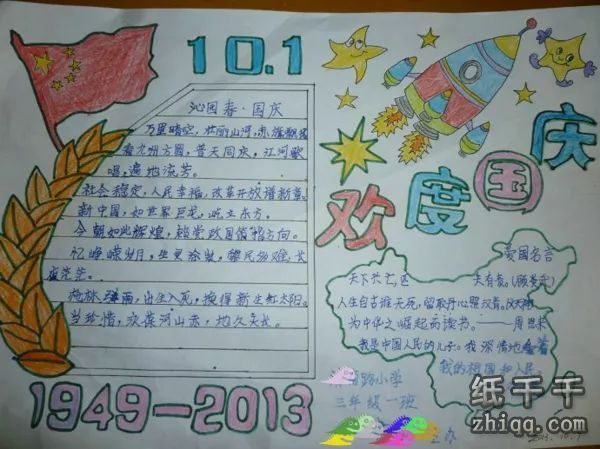 10.1
沁园春·国庆
万里晴空，壮丽山河，赤旗飘摇
看九州方圆，普天同庆，江河歌
唱，遍地流芳。
社会稳定，人民幸福，改革开放谱新章。
新中国，如世界巨龙，屹立东方。
今朝如此辉煌，赖党政国俊指方向。
忆峥嵘岁月，生灵涂炭，黎民
茫茫。
枪林弹雨，出生入死，换得新生红太阳。
当珍惜，欢葆河山赤，地久天长。
1949-2013
欢度国庆
爱国名言
天下兴亡，匹夫有责。(顾炎武)
人生自古谁无死，留取丹心照汗青。文天祥
为中华之崛起而读书。——周恩来
我是中国人民的儿子。我深情地爱着
我的祖国和人民。
路小学
三年级一班
王
纸千千
zhiqq.com
2013.10.1